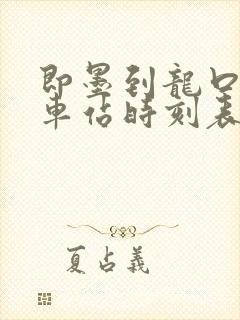 即墨到龍口
車佔時刻表
夏占義